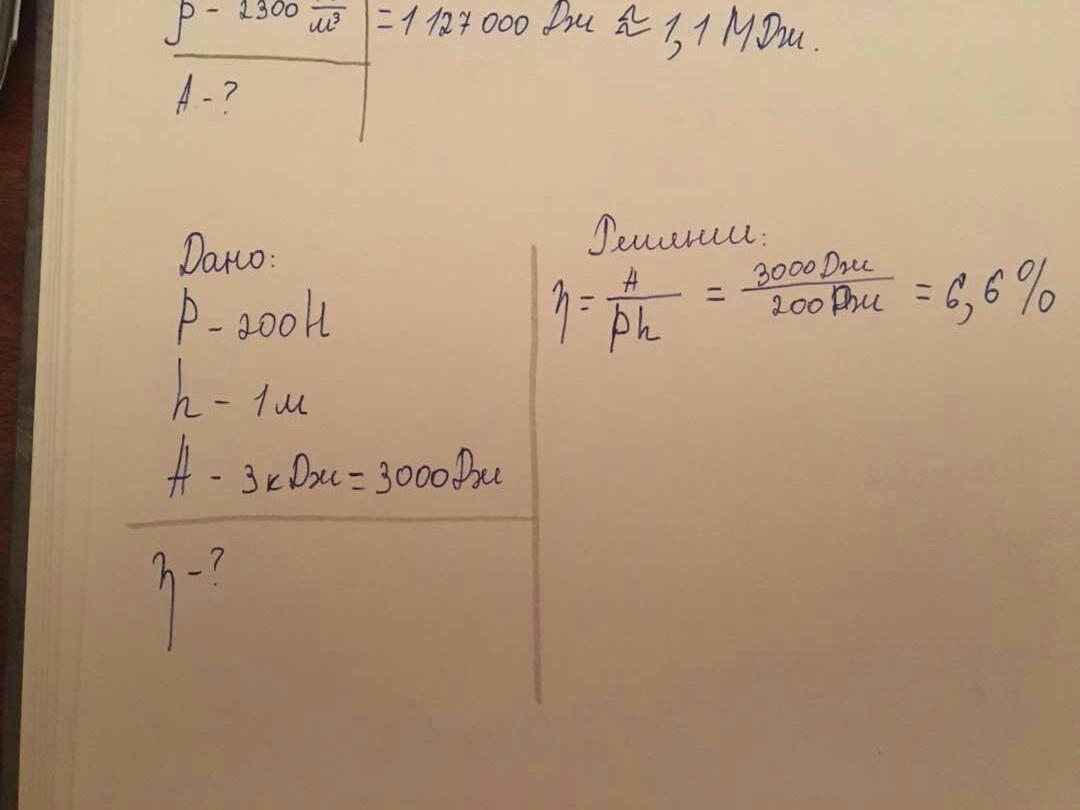 ρ - 2300 /м³ = 1 127 000 Дж ≈ 1,1 МДж.
A - ?
Дано:
P - 200Н
h - 1м
A - 3кДж = 3000Дж
η - ?
Решении:
η = A/Ph = 3000Дж/200Дж = 6,6%